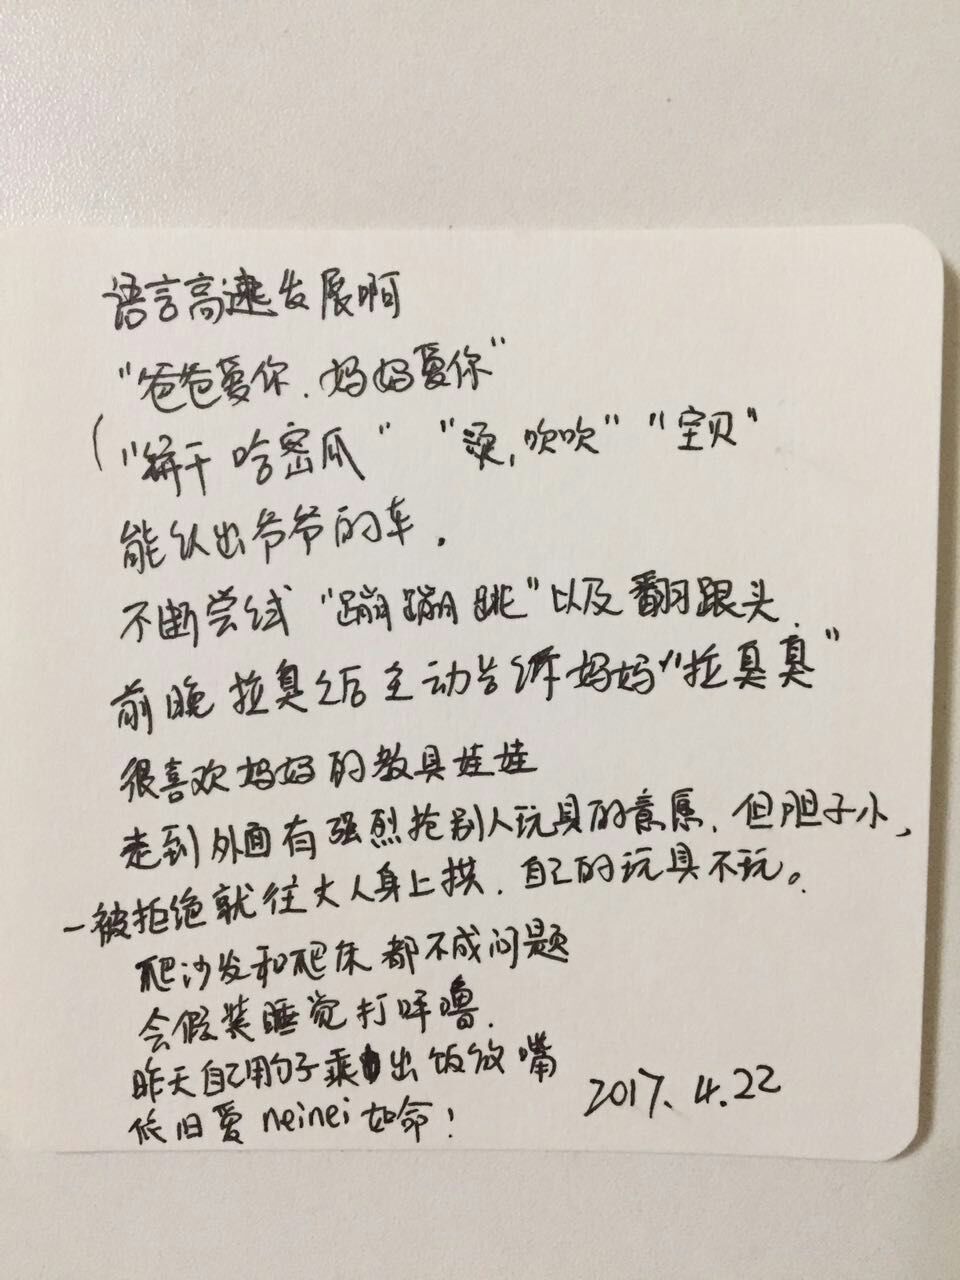 语言高速发展啊
"爸爸爱你.妈妈爱你"
("饼干 哈密瓜" "烫,吹吹" "宝贝"
能认出爷爷的车.
不断尝试"蹦蹦跳"以及翻跟头.
前晚拉臭之后主动告诉妈妈"拉臭臭"
很喜欢妈妈的教具娃娃
走到外面有强烈抢别人玩具的意愿.但胆子小,
一被拒绝就往大人身上拱.自己的玩具不玩。
爬沙发和爬床都不成问题
会假装睡觉打呼噜.
昨天自己用勺子乘出饭放嘴
依旧爱neinei如命!
2017.4.22